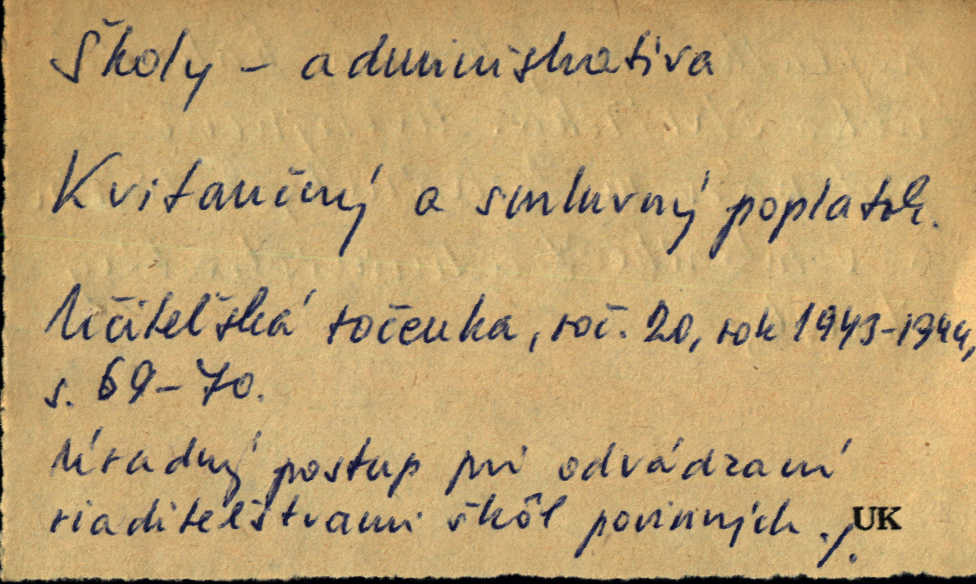 Školy - administratíva
Kvitančný a smluvný poplatok.
Učiteľská ročenka, roč. 20, rok 1943-1944,
s. 69-70.
Úradný postup pri odvádzaní
riaditeľstvami škôl povinných ./.
UK